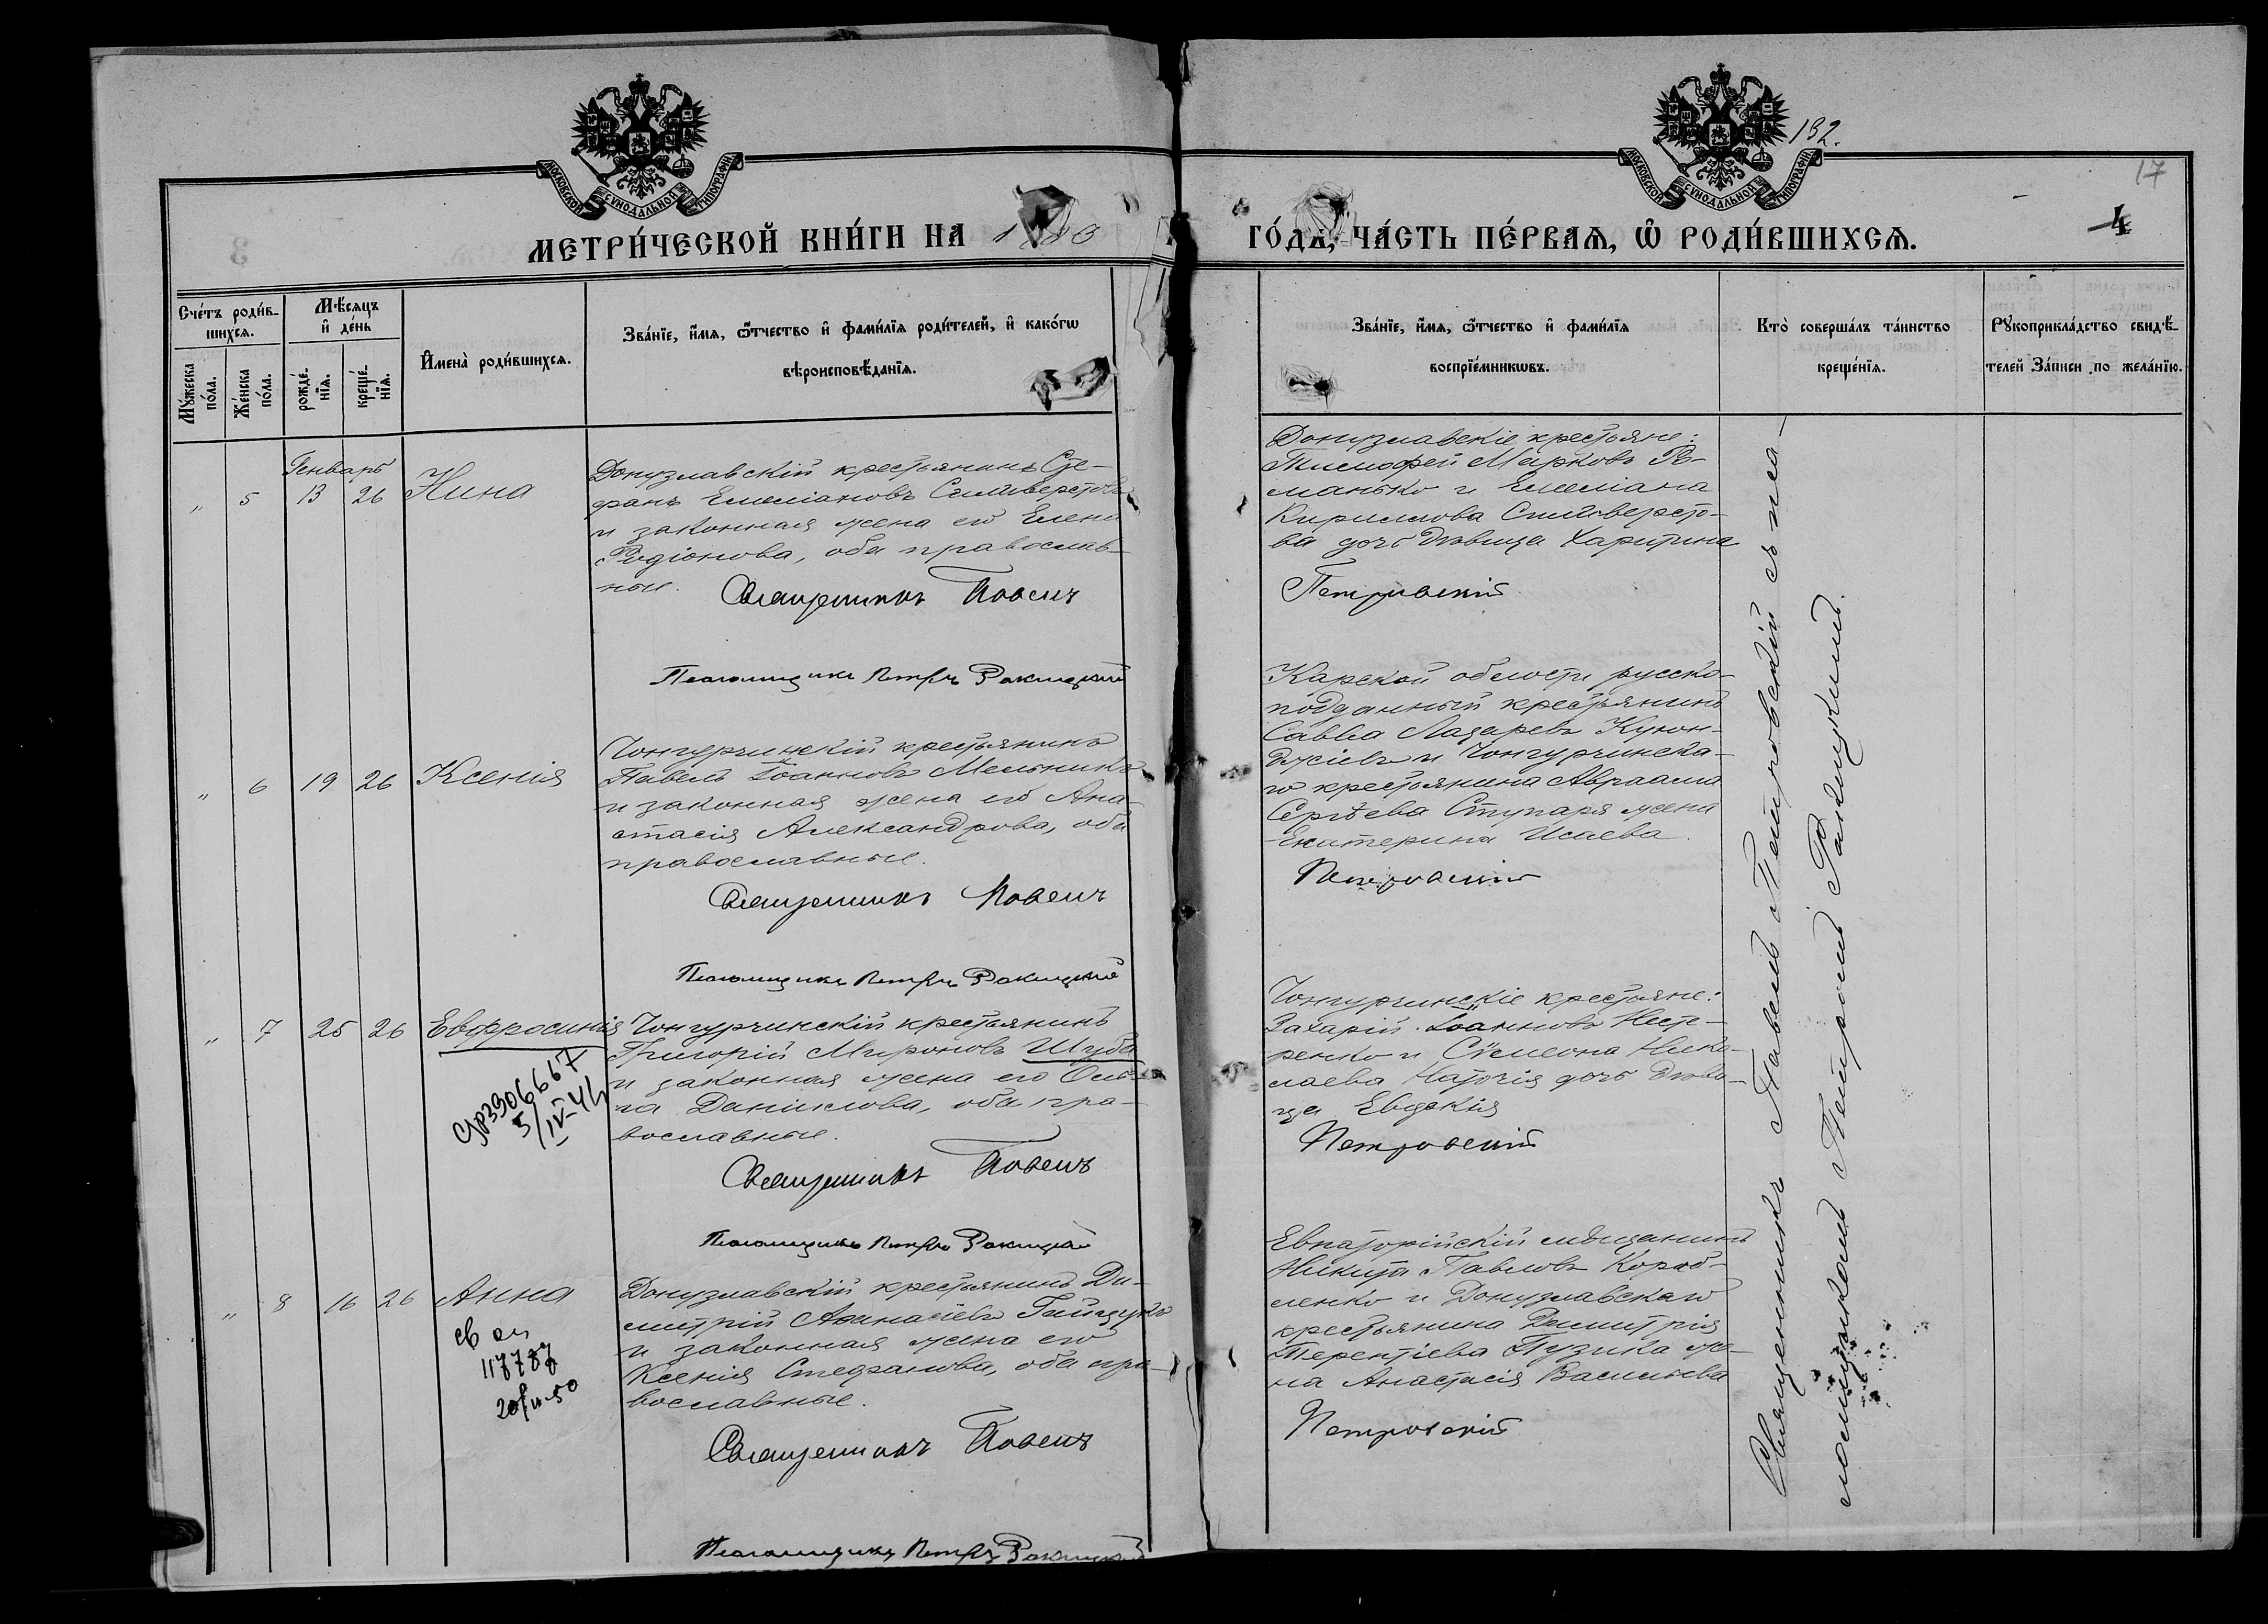 132.
17
МОСКОВСКОЙ СѴНОДАЛЬНОЙ ТИПОГРАФІИ
МОСКОВСКОЙ СѴНОДАЛЬНОЙ ТИПОГРАФІИ
МЕТРИ́ЧЕСКОЙ КНИ́ГИ НА
ГО́ДА, ЧА́СТЬ ПЕ́РВАѦ, Ѡ҆ РОДИ́ВШИХСѦ.
4
Сче́тъ роди́в-
шихсѧ.
Мѣ́сѧцъ
и҆ де́нь
Мꙋ́жеска
по́ла.
Же́нска
по́ла.
рожде́-
нїѧ.
креще́-
нїѧ.
И҆мена̀ роди́вшихсѧ.
Зва́нїе, и҆́мѧ, ѻ҆́тчество и҆ фами́лїѧ роди́телей, и҆ како́гѡ
вѣроисповѣ́данїѧ.
Зва́нїе, и҆́мѧ, ѻ҆́тчество и҆ фами́лїѧ
воспрїе́мникѡвъ.
Кто̀ соверша́лъ та́инство
креще́нїѧ.
Рꙋкоприкла́дство свидѣ́-
телей За́писи по жела́нїю.
Генварь
„ 5 13 26 Нина
Донузлавскій крестьянинъ Сте-
фанъ Емеліановъ Силиверстовъ
и законная жена его Елена
Родіонова, оба православ-
ные.
Священникъ Павелъ
Псаломщикъ Петръ Ракицкій
Донузлавскіе крестьяне:
Тимофей Марковъ Ро-
манько и Емеліана
Кириллова Силиверсто-
ва дочь девица Харитина
Петровскій
„ 6 19 26 Ксенія
Чонгурчинскій крестьянинъ
Павелъ Іоанновъ Мельникъ
и законная жена его Ана-
стасія Александрова, оба
православные.
Священникъ Павелъ
Псаломщикъ Петръ Ракицкій
Карской области русско-
подданный крестьянинъ
Савва Лазаревъ Куюн-
джіевъ и Чонгурчинска-
го крестьянина Авраама
Сергѣева Ступаря жена
Екатерина Исаева.
Петровскій
„ 7 25 26 Евфросинія
СР3906667
5/IV-41
Чонгурчинскій крестьянинъ
Григорій Мироновъ Шуба
и законная жена его Оль-
га Даніилова, оба пра-
вославные.
Священникъ Павелъ
Псаломщикъ Петръ Ракицкій
Чонгурчинскіе крестьяне:
Захарій Іоанновъ Несте-
ренко и Сѵмеона Нико-
лаева дочь деви-
ца Евдокія
Петровскій
„ 8 16 26 Анна
св
20/II-50
Донузлавскій крестьянинъ Ди-
митрій Аѳанасіевъ Гайдукъ
и законная жена его
Ксенія Стефанова, оба пра-
вославные.
Священникъ Павелъ
Псаломщикъ Петръ Ракицкій
Евпаторійскій мѣщанинъ
Никита Павловъ Короб-
ленко и Донузлавскаго
крестьянина Димитрія
Терентіева Пузика же-
на Анастасія Васильева
Петровскій
Священникъ Павелъ Петровскій съ пса-
ломщикомъ Петромъ Ракицкимъ.